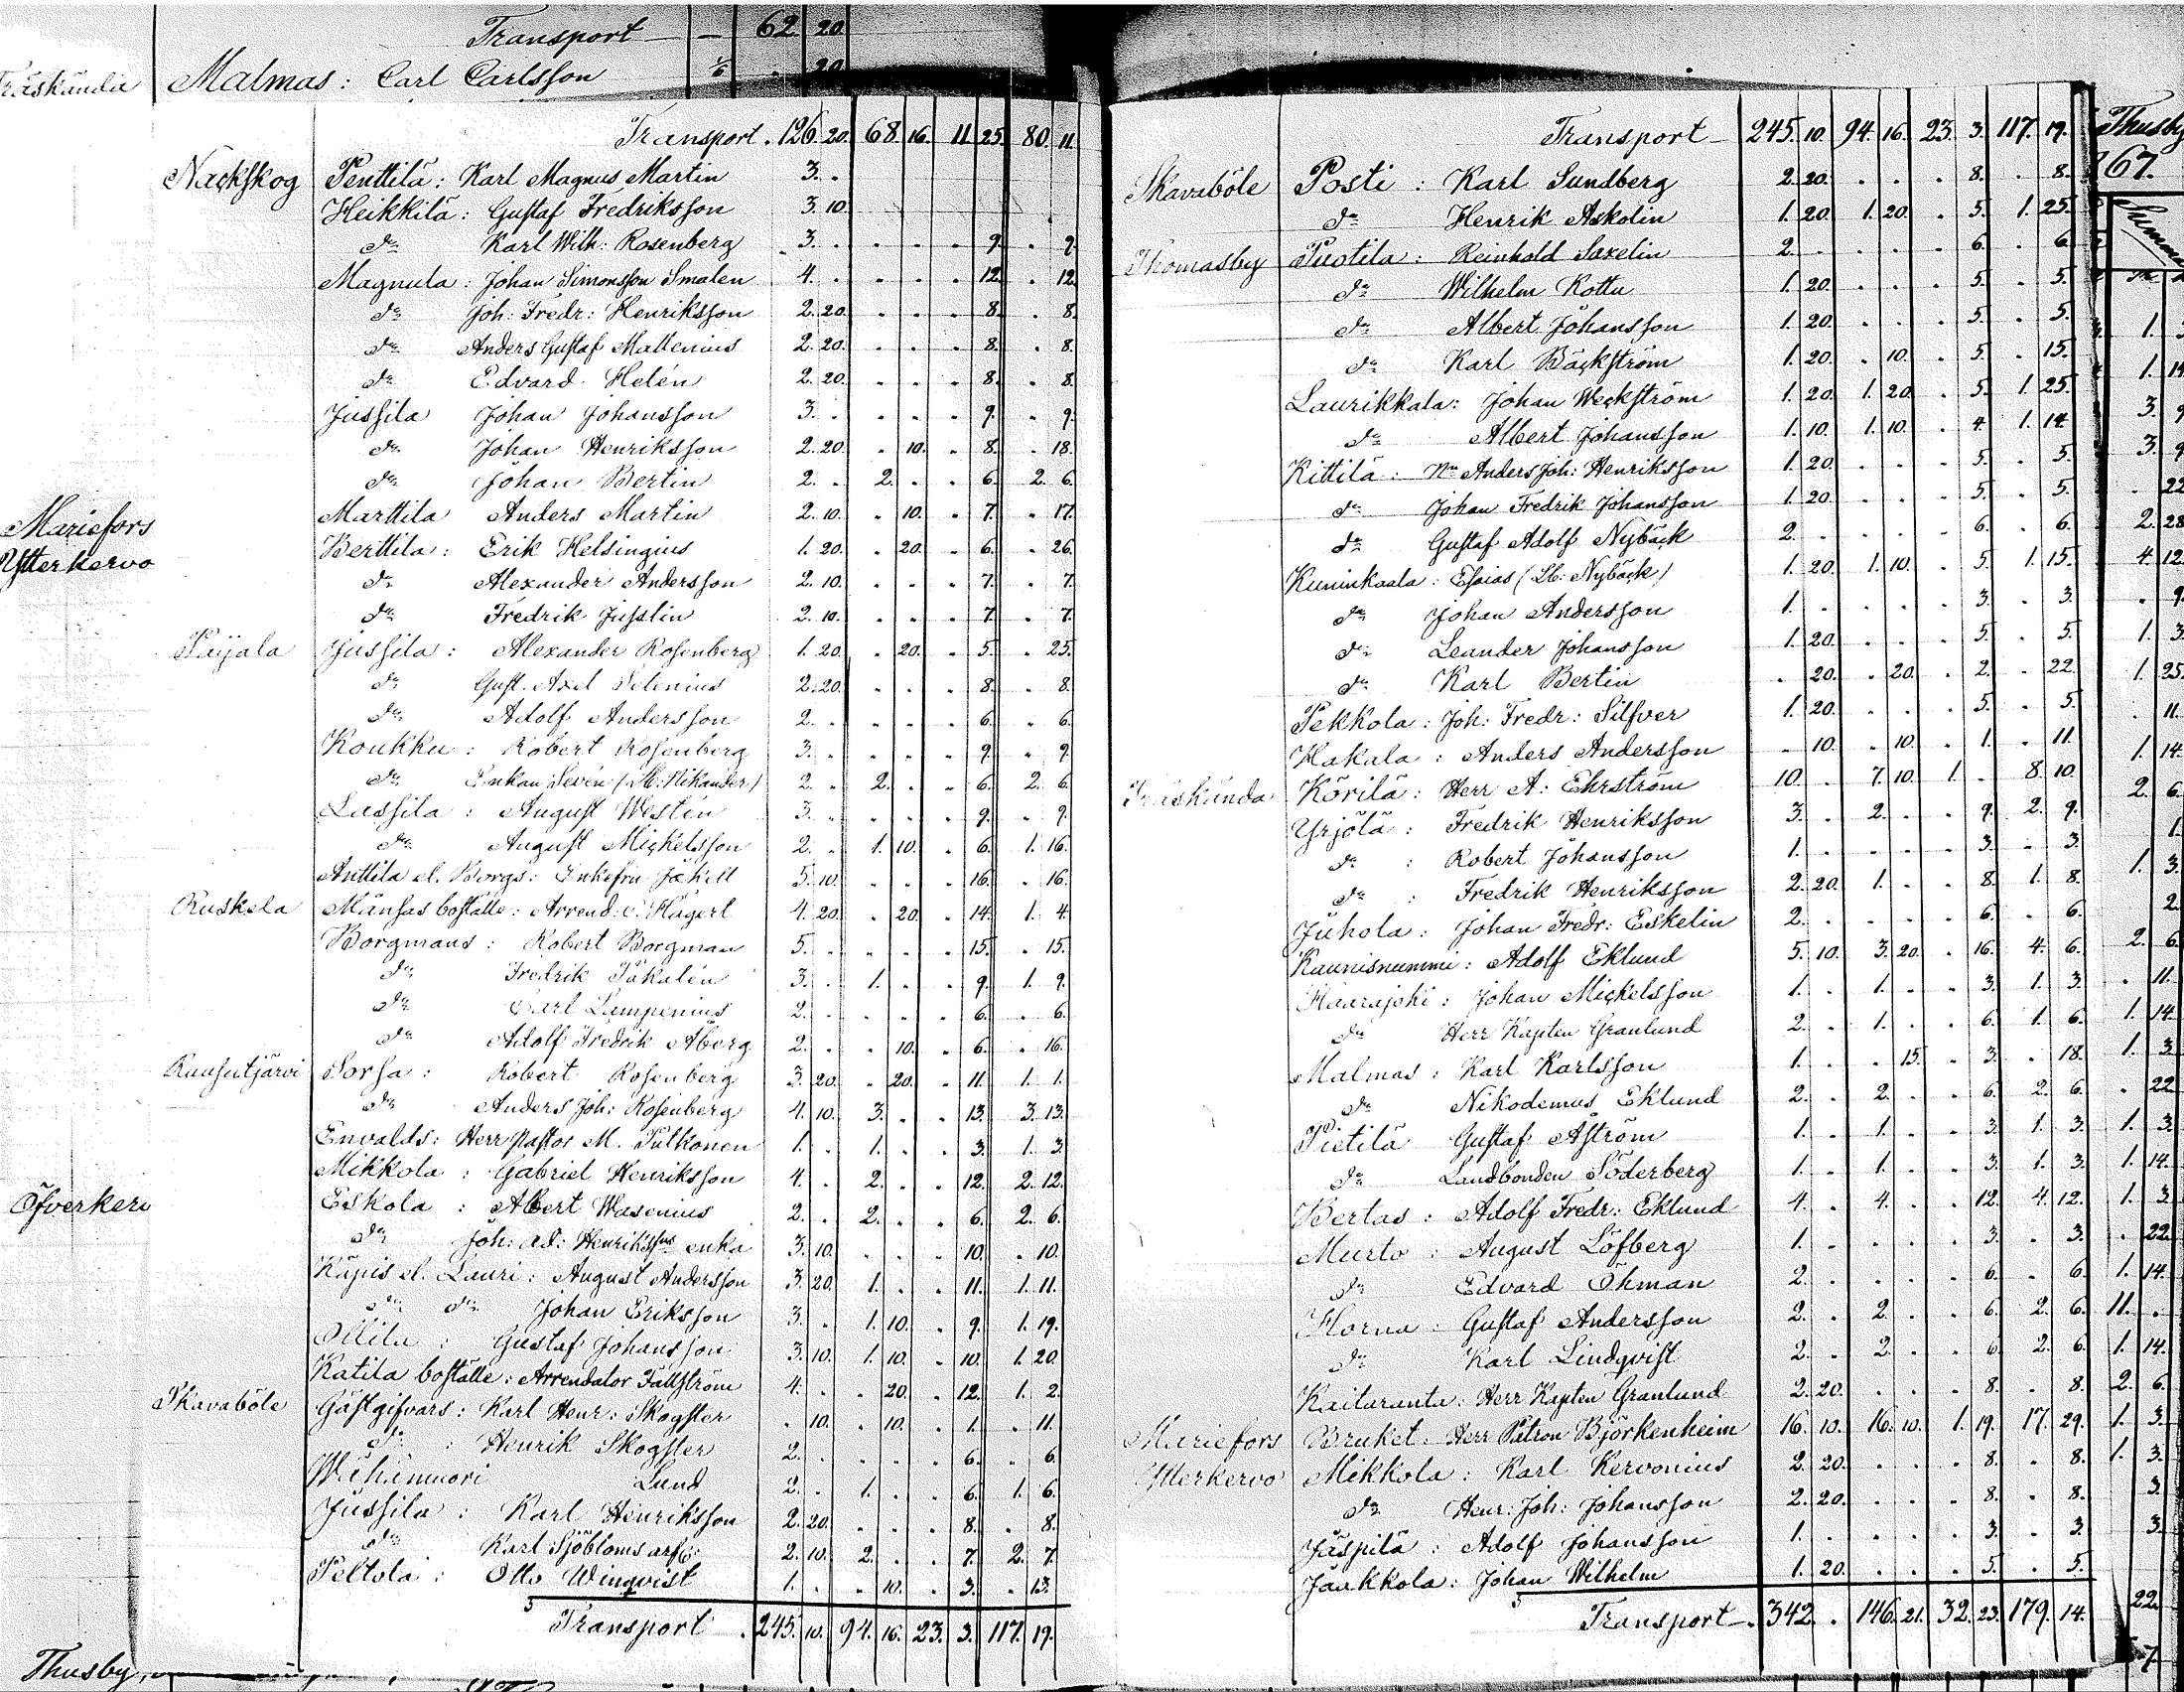 Transport — 62. 20.
Träskända Malmas: Carl Carlsson 1/6 . 20
Transport. 126. 20. 68. 16. 11. 25. 80. 11.
Nackskog Penttilä: Karl Magnus Martin 3. .
Heikkilä: Gustaf Fredriksson 3. 10.
do Karl Wilh: Rosenberg 3. . . . . 9. . 9.
Magnula: Johan Simonsson Smalen 4. . . . . 12. . 12.
do Joh: Fredr: Henriksson 2. 20. . . . 8. . 8.
do Anders Gustaf Mattenius 2. 20. . . . 8. . 8.
do Edvard Helén 2. 20. . . . 8. . 8.
Jussila Johan Johansson 3. . . . . 9. . 9.
do Johan Henriksson 2. 20. . 10. . 8. . 18.
do Johan Bertin 2. . 2. . . 6. 2. 6.
Marttila Anders Martin 2. 10. . 10. . 7. . 17.
Berttila: Erik Helsingius 1. 20. . 20. . 6. . 26.
do Alexander Andersson 2. 10. . . . 7. . 7.
do Fredrik Jusslin 2. 10. . . . 7. . 7.
Paijala Jussila: Alexander Rosenberg 1. 20. . 20. . 5. . 25.
do Gust. Axel Selenius 2. 20. . . . 8. . 8.
do Adolf Andersson 2. . . . . 6. . 6.
Koukku: Robert Rosenberg 3. . . . . 9. . 9.
do Enkan Sevén (Lb: Nikander) 2. . 2. . . 6. 2. 6.
Lassila: August Westén 3. . . . . 9. . 9.
do August Mickelsson 2. . 1. 10. . 6. 1. 16.
Anttila el. Borgs: Enkefru Jakell 5. 10. . . . 16. . 16.
Ruskela Månsas boställe: Arrend: v: Hägert 4. 20. . 20. . 14. 1. 4.
Borgmans: Robert Borgman 5. . . . . 15. . 15.
do Fredrik Pakalén 3. . 1. . . 9. 1. 9.
do Carl Lampenius 2. . . . . 6. . 6.
do Adolf Fredrik Åberg 2. . . 10. . 6. . 16.
Ruusutjärvi Sorsa: Robert Rosenberg 3. 20. . 20. . 11. 1. 1.
do Anders Joh: Rosenberg 4. 10. 3. . . 13. 3. 13.
Envalds: Herr Pastor M. Pulkonen 1. . 1. . . 3. 1. 3.
Mikkola: Gabriel Henriksson 4. . 2. . . 12. 2. 12.
Eskola: Albert Wasenius 2. . 2. . . 6. 2. 6.
do Joh: Ad: Henrikssns enka 3. 10. . . . 10. . 10.
Käpis el. Lauri: August Andersson 3. 20. 1. . . 11. 1. 11.
do do Johan Eriksson 3. . 1. 10. . 9. 1. 19.
Ollila: Gustaf Johansson 3. 10. 1. 10. . 10. 1. 20.
Katila boställe: Arrendator Fällström 4. . . 20. . 12. 1. 2.
Skavaböle Gästgifvars: Karl Henr: Skogster . 10. . 10. . 1. . 11.
do: Henrik Skogster 2. . . . . 6. . 6.
Wihinvuori Lund 2. . 1. . . 6. 1. 6.
Jussila: Karl Henriksson 2. 20. . . . 8. . 8.
do Karl Sjöbloms arfv: 2. 10. 2. . . 7. 2. 7.
Peltola: Otto Winqvist 1. . . 10. . 3. . 13.
Transport. 245. 10. 94. 16. 23. 3. 117. 19.
Mariefors
Ytterkervo
Öfverkerv
Thusby,
Transport 245. 10. 94. 16. 23. 3. 117. 19.
Skavaböle Posti: Karl Sundberg 2. 20. . . . 8. . 8.
do Henrik Askolin 1. 20. 1. 20. . 5. 1. 25.
Thomasby Puotila: Reinhold Saxelin 2. . . . . 6. . 6.
do Wilhelm Rottu 1. 20. . . . 5. . 5.
do Albert Johansson 1. 20. . . . 5. . 5.
do Karl Bäckström 1. 20. . 10. . 5. . 15.
Laurikkala: Johan Weckström 1. 20. 1. 20. . 5. 1. 25.
do Albert Johansson 1. 10. 1. 10. . 4. 1. 14.
Kittilä: Nn Anders Joh: Henriksson 1. 20. . . . 5. . 5.
do Johan Fredrik Johansson 1. 20. . . . 5. . 5.
do Gustaf Adolf Nybäck 2. . . . . 6. . 6.
Kuninkaala: Esaias (Lb: Nybäck) 1. 20. 1. 10. . 5. 1. 15.
do Johan Andersson 1. . . . . 3. . 3.
do Leander Johansson 1. 20. . . . 5. . 5.
do Karl Bertin . 20. . 20. . 2. . 22.
Pekkola: Joh: Fredr: Silfver 1. 20. . . . 5. . 5.
Hakala: Anders Andersson . 10. . 10. . 1. . 11.
Träskända Körilä: Herr A: Ehrström 10. . 7. 10. 1. . 8. 10.
Yrjölä: Fredrik Henriksson 3. . 2. . . 9. 2. 9.
do: Robert Johansson 1. . . . . 3. . 3.
do: Fredrik Henriksson 2. 20. 1. . . 8. 1. 8.
Juhola: Johan Fredr: Eskelin 2. . . . . 6. . 6.
Kaunisnummi: Adolf Eklund 5. 10. 3. 20. . 16. 4. 6.
Haarajoki: Johan Mickelsson 1. . 1. . . 3. 1. 3.
do Herr Kapten Granlund 2. . 1. . . 6. 1. 6.
Malmas: Karl Karlsson 1. . . 15. . 3. . 18.
do Nikodemus Eklund 2. . 2. . . 6. 2. 6.
Pietilä Gustaf Åström 1. . 1. . . 3. 1. 3.
do Landbonden Söderberg 1. . 1. . . 3. 1. 3.
Bertas: Adolf Fredr: Eklund 4. . 4. . . 12. 4. 12.
Murto: August Löfberg 1. . . . . 3. . 3.
do Edvard Öhman 2. . . . . 6. . 6.
Horna: Gustaf Andersson 2. . 2. . . 6. 2. 6.
do Karl Lindqvist 2. . 2. . . 6. 2. 6.
Kaitaranta: Herr Kapten Granlund 2. 20. . . . 8. . 8.
Mariefors Bruket: Herr Patron Björkenheim 16. 10. 16. 10. 1. 19. 17. 29.
Ytterkervo Mikkola: Karl Kervonius 2. 20. . . . 8. . 8.
do Henr: Joh: Johansson 2. 20. . . . 8. . 8.
Jäspilä: Adolf Johansson 1. . . . . 3. . 3.
Jaakkola: Johan Wilhelm 1. 20. . . . 5. . 5.
Transport. 342. . 146. 21. 32. 23. 179. 14.
Thusby
67.
Summa
1.
1. 14
3. 9
3. 9
. 22
2. 28
4. 12
. 9.
1. 3.
1. 25.
. 11.
1. 14.
2. 6.
1.
1. 3.
2.
2. 6.
. 11.
1. 14.
1. 3.
. 22
1. 3.
1. 14.
1. 3.
. 22.
1. 14.
11. .
1. 14.
2. 6.
1. 3.
1. 3.
3.
3.
22.
7.